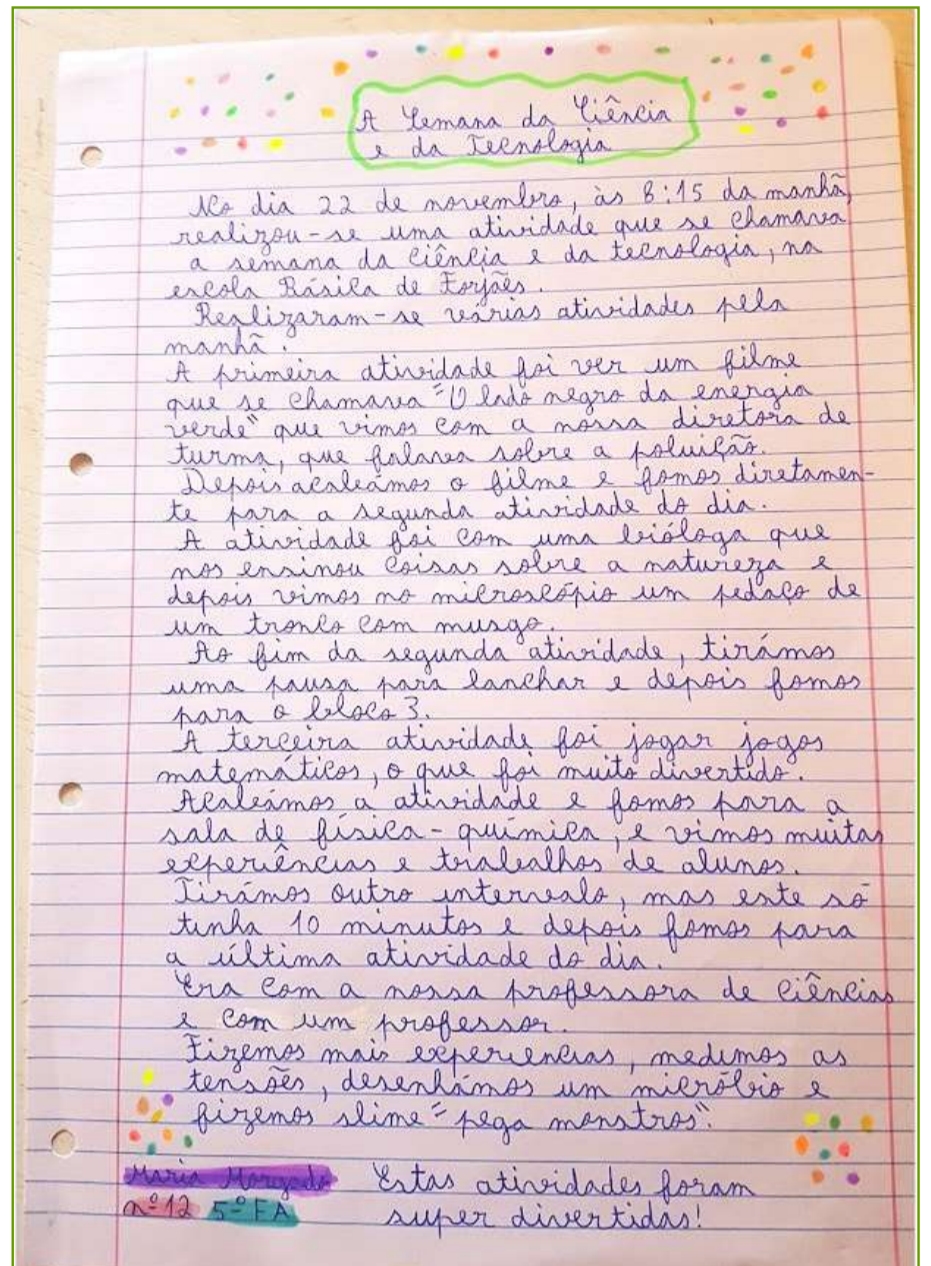 A Semana da Ciência
e da Tecnologia
No dia 22 de novembro, às 8:15 da manhã,
realizou-se uma atividade que se chamava
a semana da ciência e da tecnologia, na
escola Básica de Forjães.
Realizaram-se várias atividades pela
manhã.
A primeira atividade foi ver um filme
que se chamava "O lado negro da energia
verde" que vimos com a nossa diretora de
turma, que falava sobre a poluição.
Depois acabámos o filme e fomos diretamen-
te para a segunda atividade do dia.
A atividade foi com uma bióloga que
nos ensinou coisas sobre a natureza e
depois vimos no microscópio um pedaço de
um tronco com musgo.
Ao fim da segunda atividade, tirámos
uma pausa para lanchar e depois fomos
para o bloco 3.
A terceira atividade foi jogar jogos
matemáticos, o que foi muito divertido.
Acabámos a atividade e fomos para a
sala de física-química, e vimos muitas
experiências e trabalhos de alunos.
Tirámos outro intervalo, mas este só
tinha 10 minutos e depois fomos para
a última atividade do dia.
Era com a nossa professora de ciências
e com um professor.
Fizemos mais experiencias, medimos as
tensões, desenhámos um micróbio e
fizemos slime "pega monstros".
Maria Morgado Estas atividades foram
nº12 5º FA super divertidas!